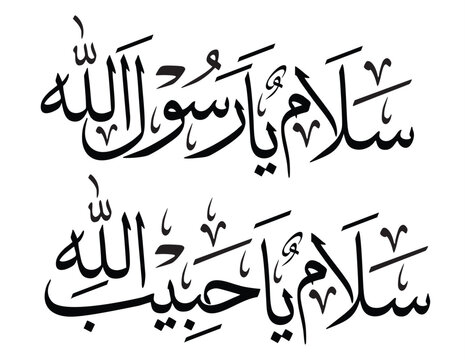 سَلَامٌ يَا رَسُوْلَ اللّٰه
سَلَامٌ يَا حَبِيْبَ اللّٰه